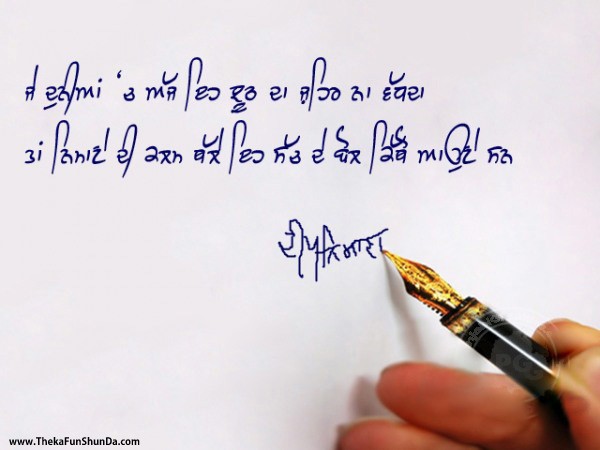 ਜੇ ਦੁਨੀਆਂ 'ਤ ਅੱਜ ਇਹ ਝੂਠ ਦਾ ਜ਼ਹਿਰ ਨਾ ਵੱਧਦਾ
ਤਾਂ ਨਿਮਾਣੇ ਦੀ ਕਲਮ ਥੱਲੇ ਇਹ ਸੱਚ ਦੇ ਬੋਲ ਕਿੱਥੋਂ ਆਉਣੇ ਸਨ
ਦੀਪ ਨਿਮਾਣਾ
www.ThekaFunShunDa.com